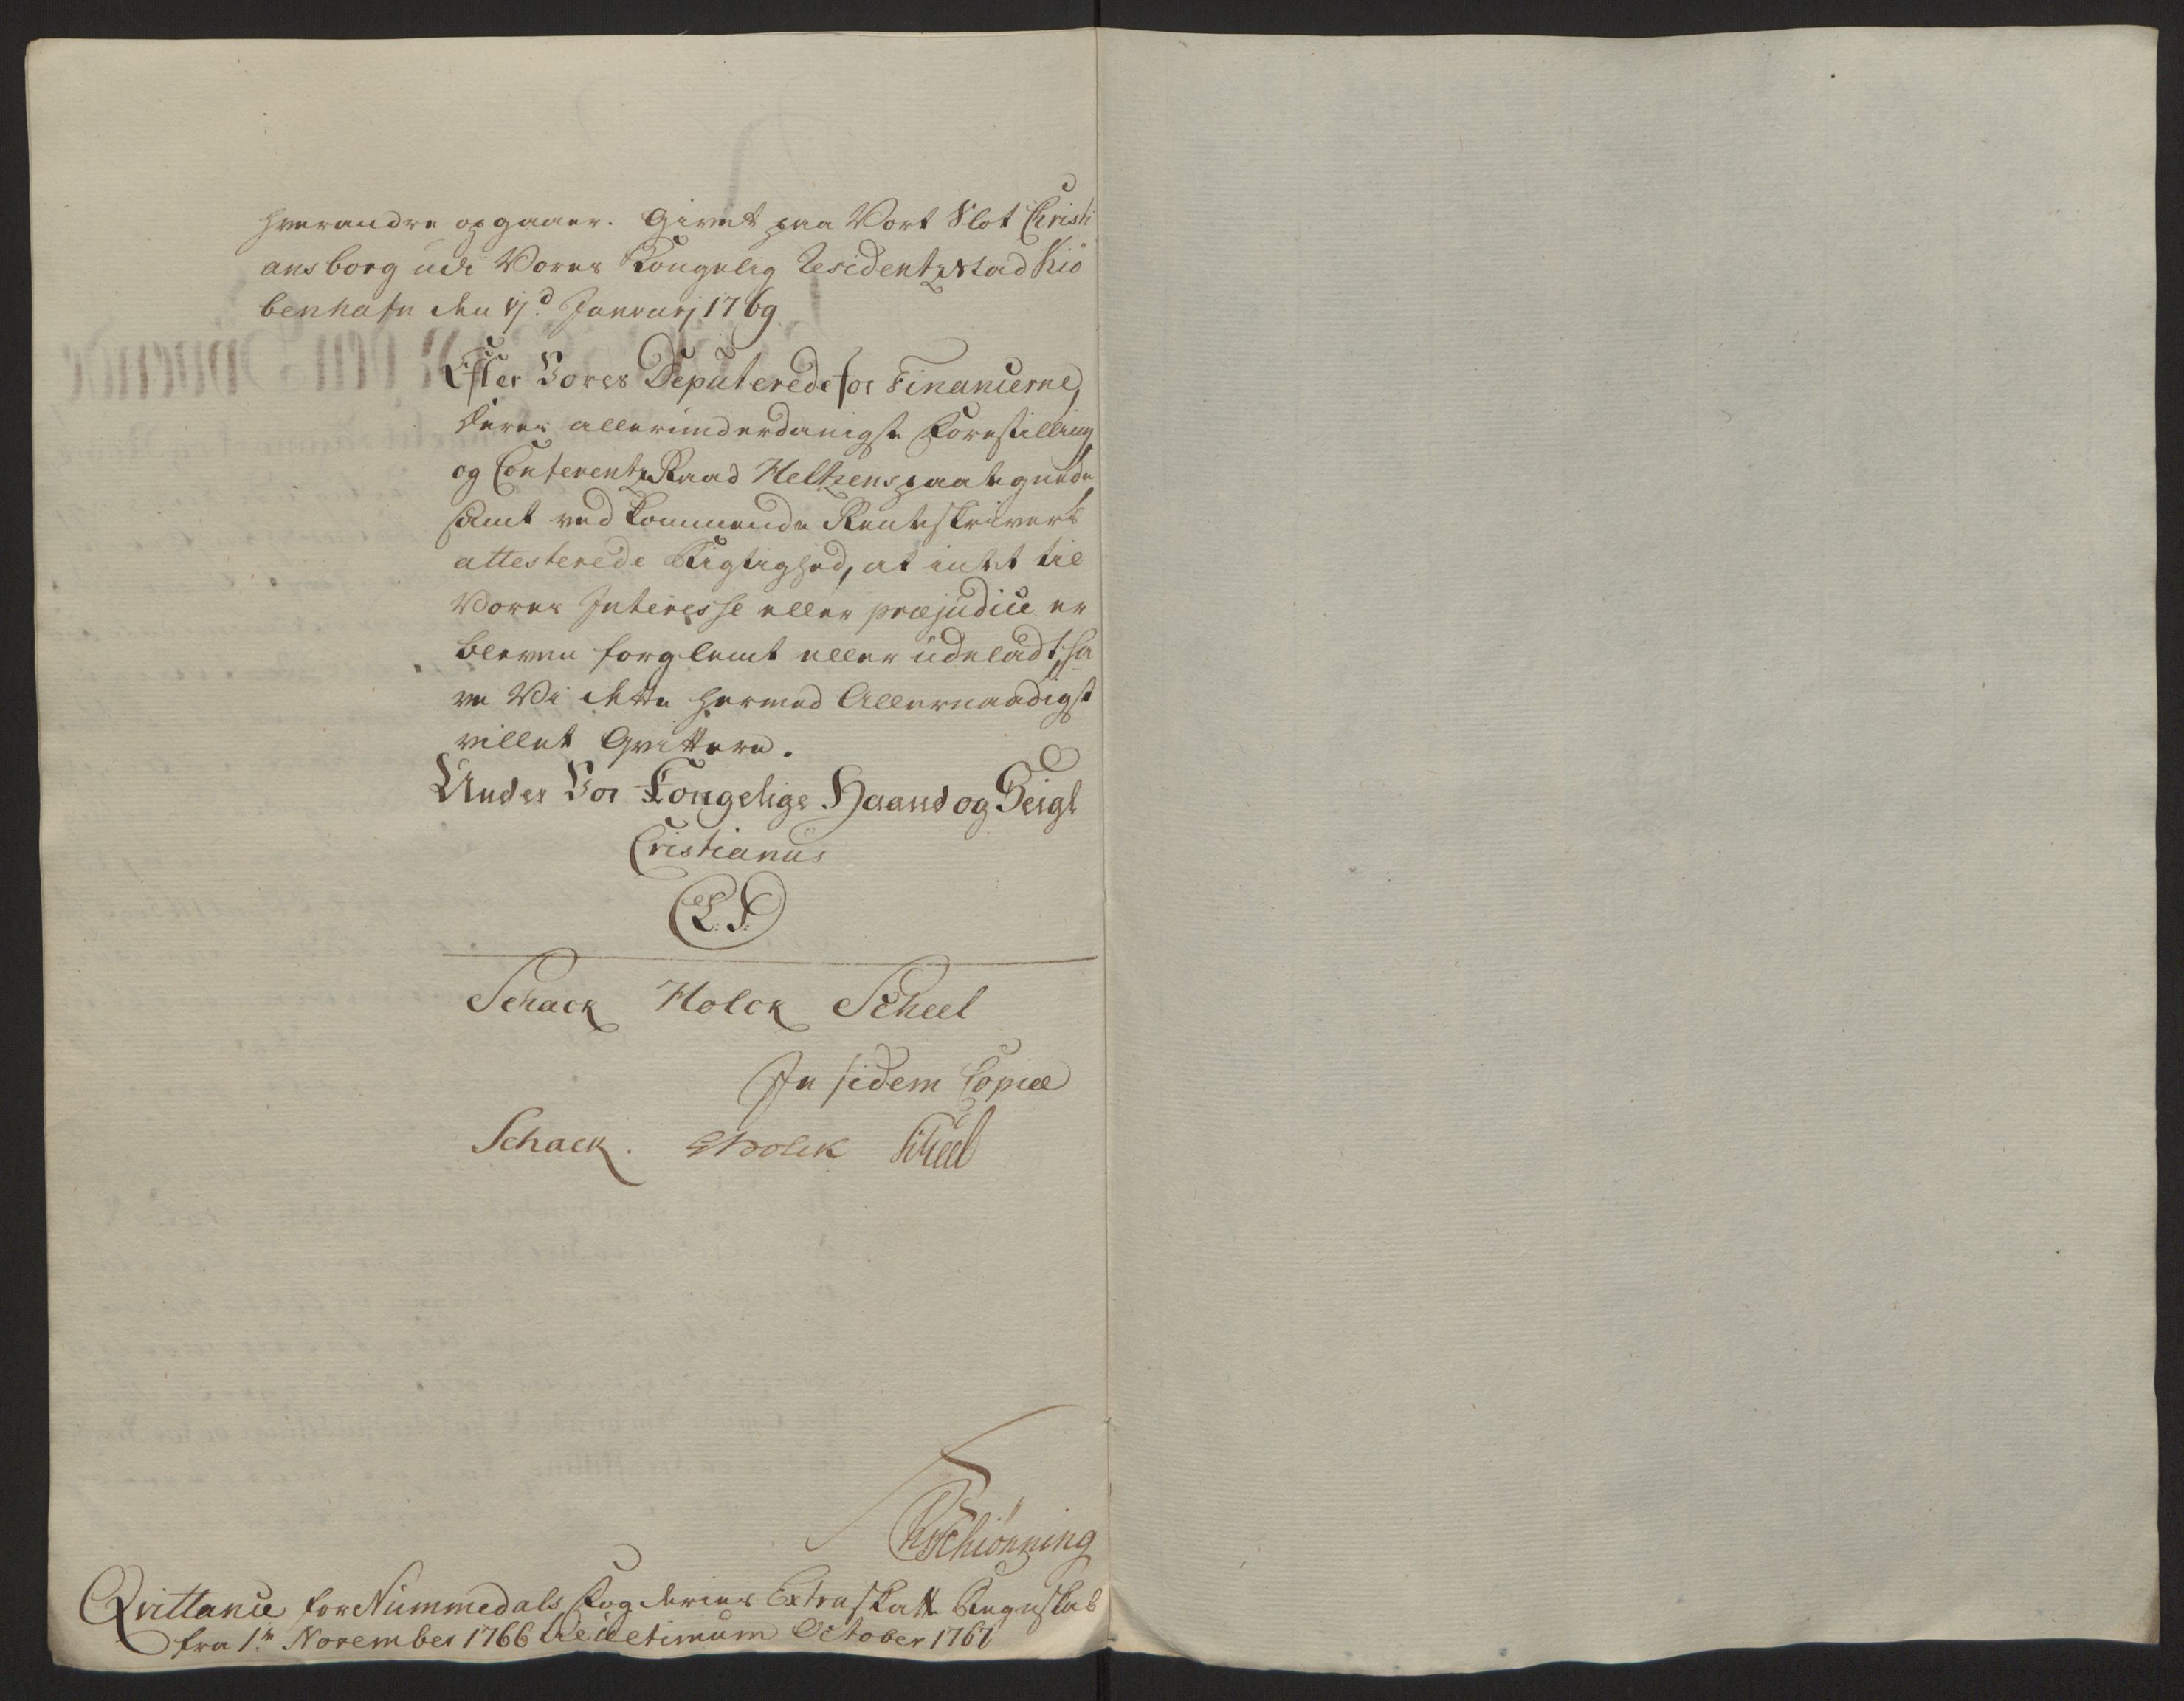 hverandre opgaaer. Givet paa Vort Slot Christi
ansborg udi Vores Kongelig Residentzstad Kiö
benhafn den Januarj 1769
Efter Vores Deputerede for Financerne,
deres allerunderdanigste Forestilling
og Conferentz Raad Heltzens paategnede
samt vedkommende Renteskrivers
attesterede Rigtighed, at intet til
Vores Interesse eller præjudice er
bleven forglemt eller udeladt, ha
ve Vi dette hermed Allernaadigst
villet Qvittere.
Under Vor Kongelige Haand og Seigl
Cristianus
L. S.
Schack Holck Scheel
In fidem Copiæ
Schack. Holck Scheel
Schiönning
Qvittance for Nummedals Fogderies Extra Skatte Regnskab
fra 1te November 1766 til ultimum October 1767